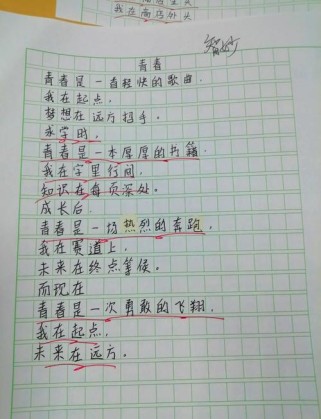 我在高店外头
青春
青春是一首轻快的歌曲.
我在起点.
梦想在远方招手.
求学时.
青春是一本厚厚的书籍.
我在字里行间.
知识在每页深处。
成长后.
青春是一场热烈的奔跑.
我在赛道上.
未来在终点等候。
而现在
青春是一次勇敢的飞翔.
我在起点.
未来在远方.